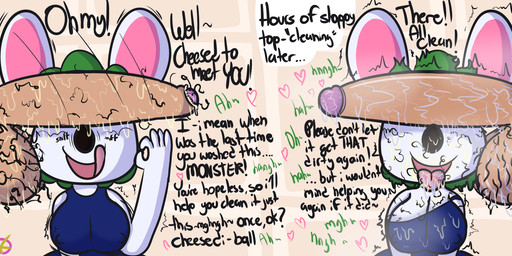 Oh my!
Well
Cheesed to
meet YOU!
Ah~
I-i mean when
was the last time
you washed this...
MONSTER!
hangh~
You're hopeless, so i'll
help you clean it just
this-mghgh~ once, ok?
cheesed i-ball
Ah~
sniff
Hours of sloppy
top-"cleaning"
later...
There!!
All
Clean!
hnngh~
hah~
Oh~
Please don't let
it get THAT
dirty again!
hah~
... but i wouldn't
mind helping you
again if it did~
mgh~
hngh~